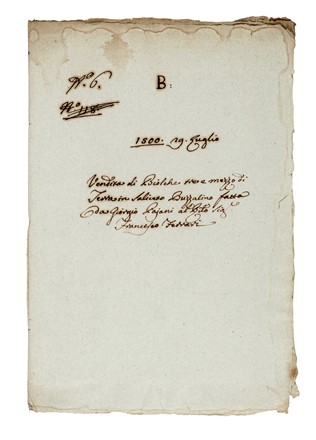 N.º 6.
B:
N.º 118
1800. 29. Luglio
Vendita di Biolche tre e mezzo di
Terra in Saliceto Buzzalino fatta
da Giorgio Rajani al Sig.
Francesco Ferrari